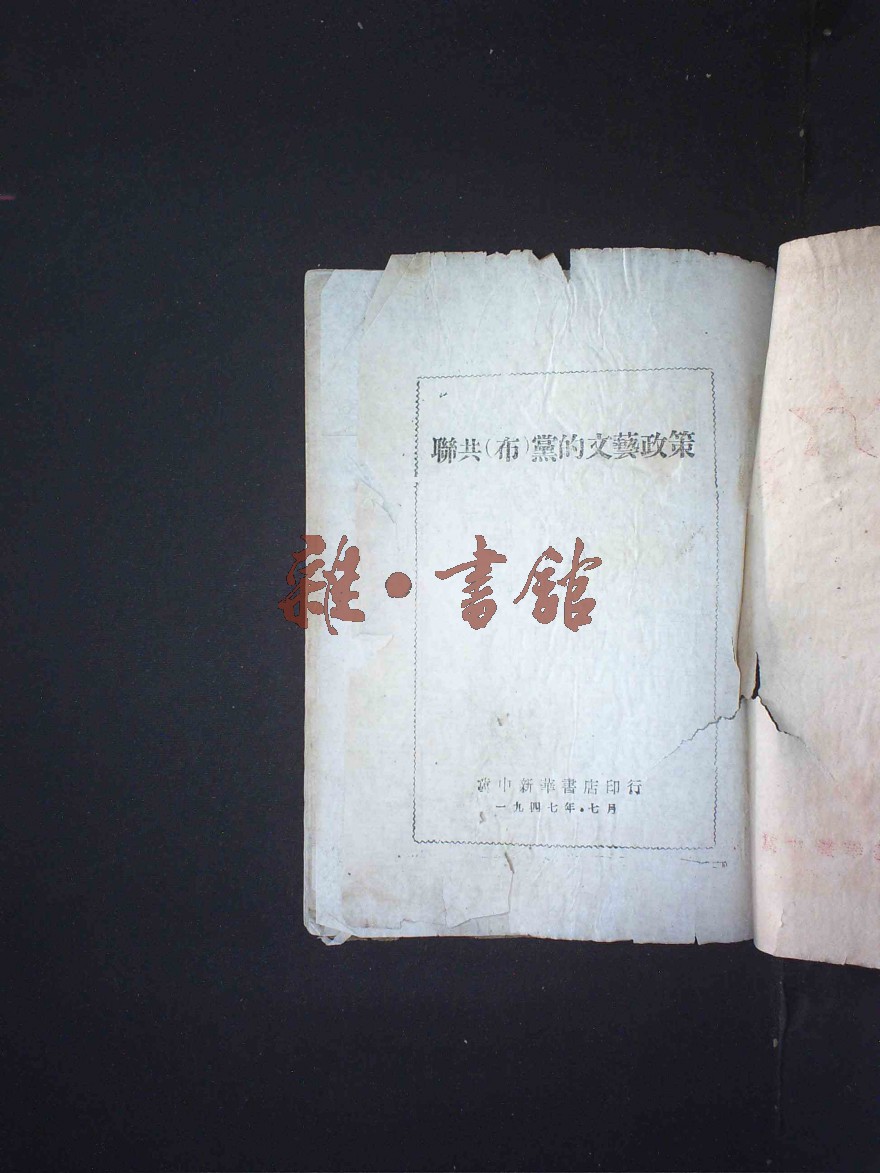 聯共(布)黨的文藝政策
雜·書館
冀中新華書店印行
一九四七年·七月